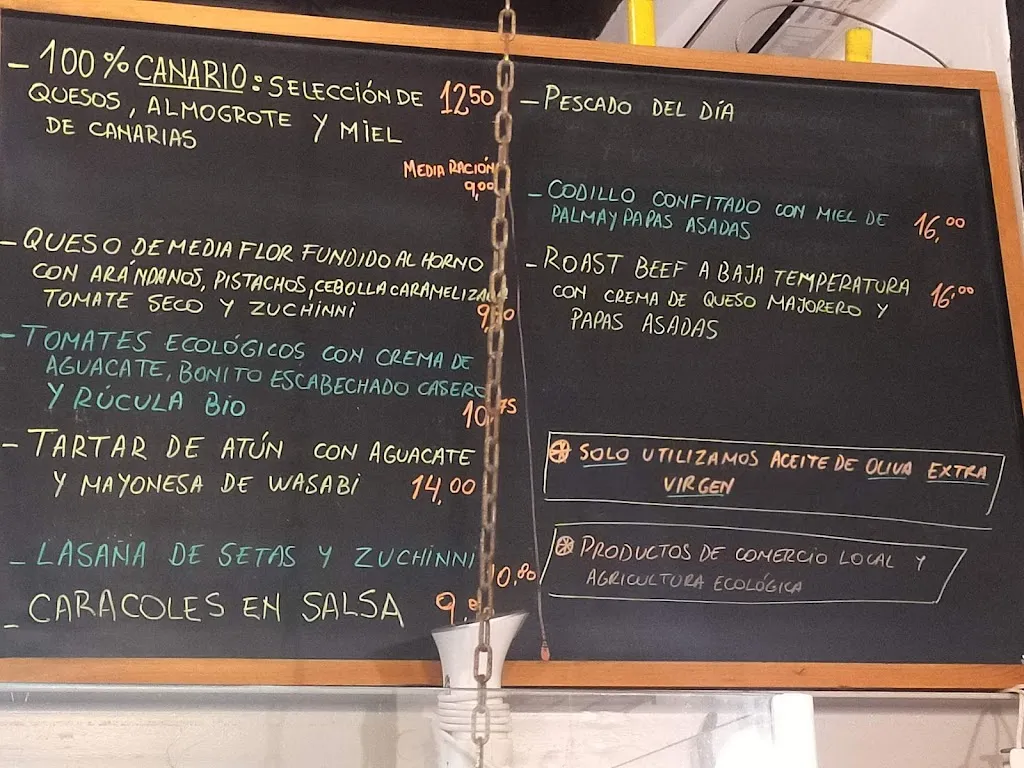 - 100% CANARIO: SELECCIÓN DE 12,50
QUESOS, ALMOGROTE Y MIEL
DE CANARIAS
MEDIA RACIÓN
9,00
- QUESO DE MEDIA FLOR FUNDIDO AL HORNO
CON ARÁNDANOS, PISTACHOS, CEBOLLA
TOMATE SECO Y ZUCHINNI
- TOMATES ECOLÓGICOS CON CREMA DE
AGUACATE, BONITO ESCABECHADO CASERO
Y RÚCULA BIO
10,75
- TARTAR DE ATÚN CON AGUACATE
Y MAYONESA DE WASABI 14,00
- LASAÑA DE SETAS Y ZUCHINNI
10,80
- CARACOLES EN SALSA
- PESCADO DEL DÍA
- CODILLO CONFITADO CON MIEL DE
PALMA Y PAPAS ASADAS 16,00
- ROAST BEEF A BAJA TEMPERATURA
CON CREMA DE QUESO MAJORERO Y 16,00
PAPAS ASADAS
SOLO UTILIZAMOS ACEITE DE OLIVA EXTRA
VIRGEN
PRODUCTOS DE COMERCIO LOCAL Y
AGRICULTURA ECOLÓGICA